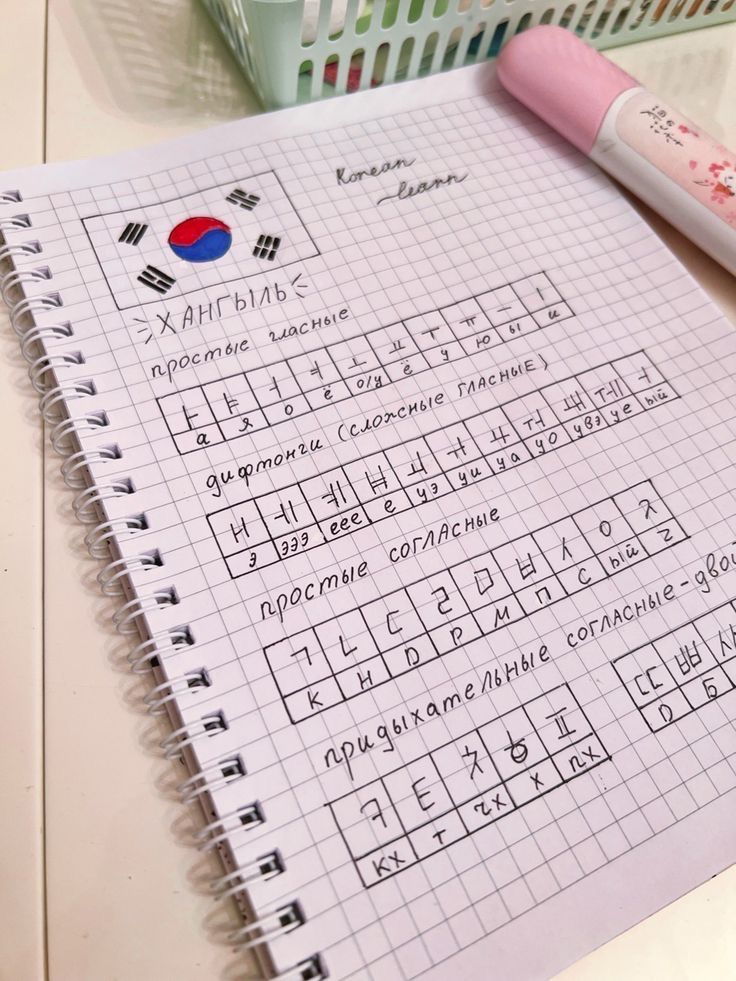 Korean
learn
ХАНГЫЛЬ
простые гласные
ㅏ ㅑ ㅓ ㅕ ㅗ ㅛ ㅜ ㅠ ㅡ ㅣ
а я о ё о/у ё у ю ы и
дифтонги (сложные гласные)
ㅐ ㅔ ㅖ ㅒ ㅚ ㅟ ㅘ ㅝ ㅙ ㅞ ㅢ
э эээ еее е уэ уи уа уо увэ уе ый
простые согласные
ㄱ ㄴ ㄷ ㄹ ㅁ ㅂ ㅅ ㅇ ㅈ
к н D р м п с ый ч
придыхательные согласные - двой
ㅋ ㅌ ㅊ ㅎ ㅍ
кх т чх х пх
ㄸ ㅃ ㅆ
D Б